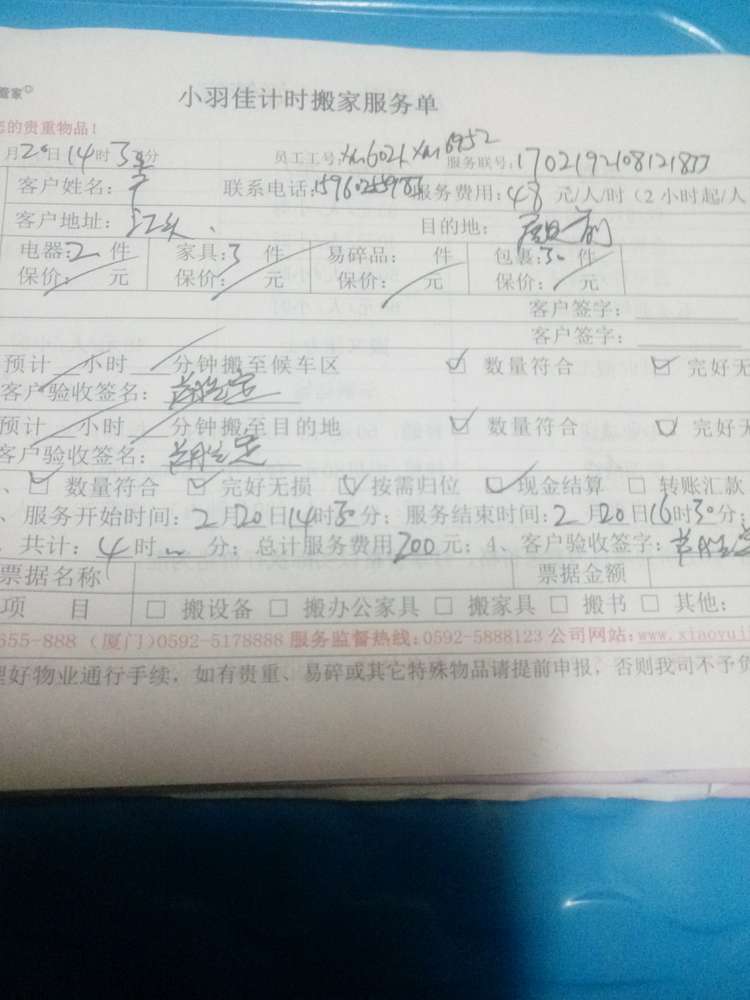 管家
小羽佳计时搬家服务单
您的贵重物品！
月20日14时30分 员工工号：xm6021 xm6952 服务联号：
客户姓名： 联系电话： 服务费用：48 元/人/时（2小时起/人
客户地址：江头、 目的地：殿前
电器：2件 家具：3 件 易碎品： 件 包裹：30 件
保价： 元 保价： 元 保价： 元 保价： 元
客户签字：
客户签字：
预计 小时 分钟搬至候车区 ☑ 数量符合 ☑ 完好无
客户验收签名：
预计 小时 分钟搬至目的地 ☑ 数量符合 ☑ 完好无
客户验收签名：
、☑ 数量符合 ☑ 完好无损 ☑ 按需归位 ☑ 现金结算 □ 转账汇款
、服务开始时间：2月20日14时30分；服务结束时间：2月20日16时30分；
、共计：4时 分；总计服务费用200元；4、客户验收签字：
票据名称 票据金额
项 目 □ 搬设备 □ 搬办公家具 □ 搬家具 □ 搬书 □ 其他：
655-888 （厦门）0592-5178888 服务监督热线：0592-5888123 公司网站：www.xiaoyuji
理好物业通行手续，如有贵重、易碎或其它特殊物品请提前申报，否则我司不予负